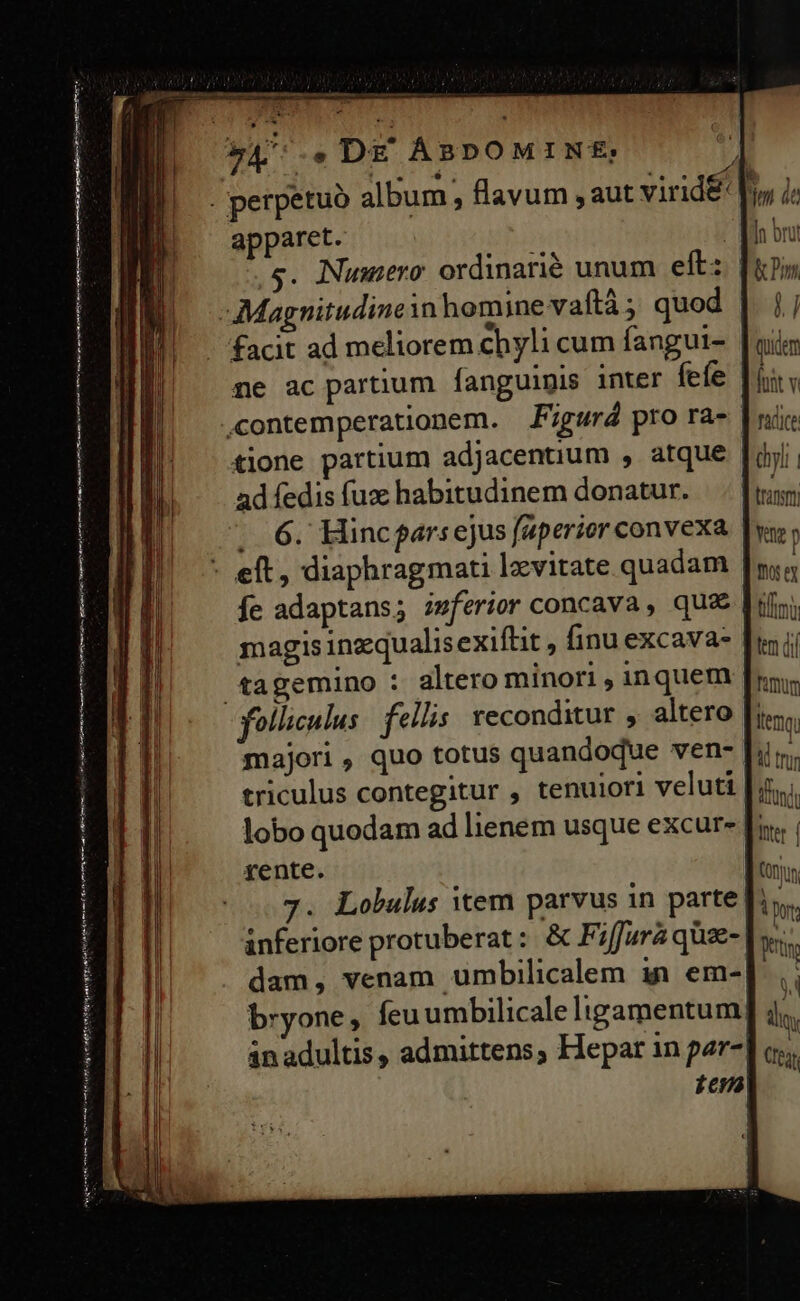 74 DE ABDOMINE,
perpetuò album, flavum, aut viride
apparet.
5. Numero ordinariè unum eſt:
Magnitudine in homine vaſtâ; quod
facit ad meliorem chyli cum ſangui-
ne ac partium ſanguinis inter ſeſe
contemperationem. Figurâ pro ra-
tione partium adjacentium, atque
ad ſedis ſuæ habitudinem donatur.
6. Hinc pars ejus ſuperior convexa
eſt, diaphragmati lævitate quadam
ſe adaptans; inferior concava, quæ
magis inæqualis exiſtit, ſinu excava-
ta gemino: altero minori, in quem
folliculus fellis reconditur, altero
majori, quo totus quandoque ven-
triculus contegitur, tenuiori veluti
lobo quodam ad lienem usque excur-
rente.
7. Lobulus item parvus in parte
inferiore protuberat: & Fiſſurâ quæ-
dam, venam umbilicalem in em-
bryone, ſeu umbilicale ligamentum
in adultis, admittens, Hepar in par-
tem